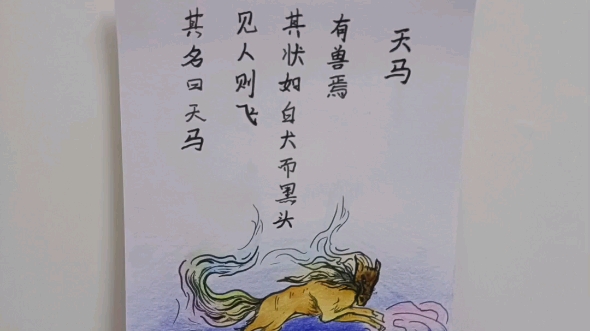 天马
有兽焉
其状如白犬而黑头
见人则飞
其名曰天马